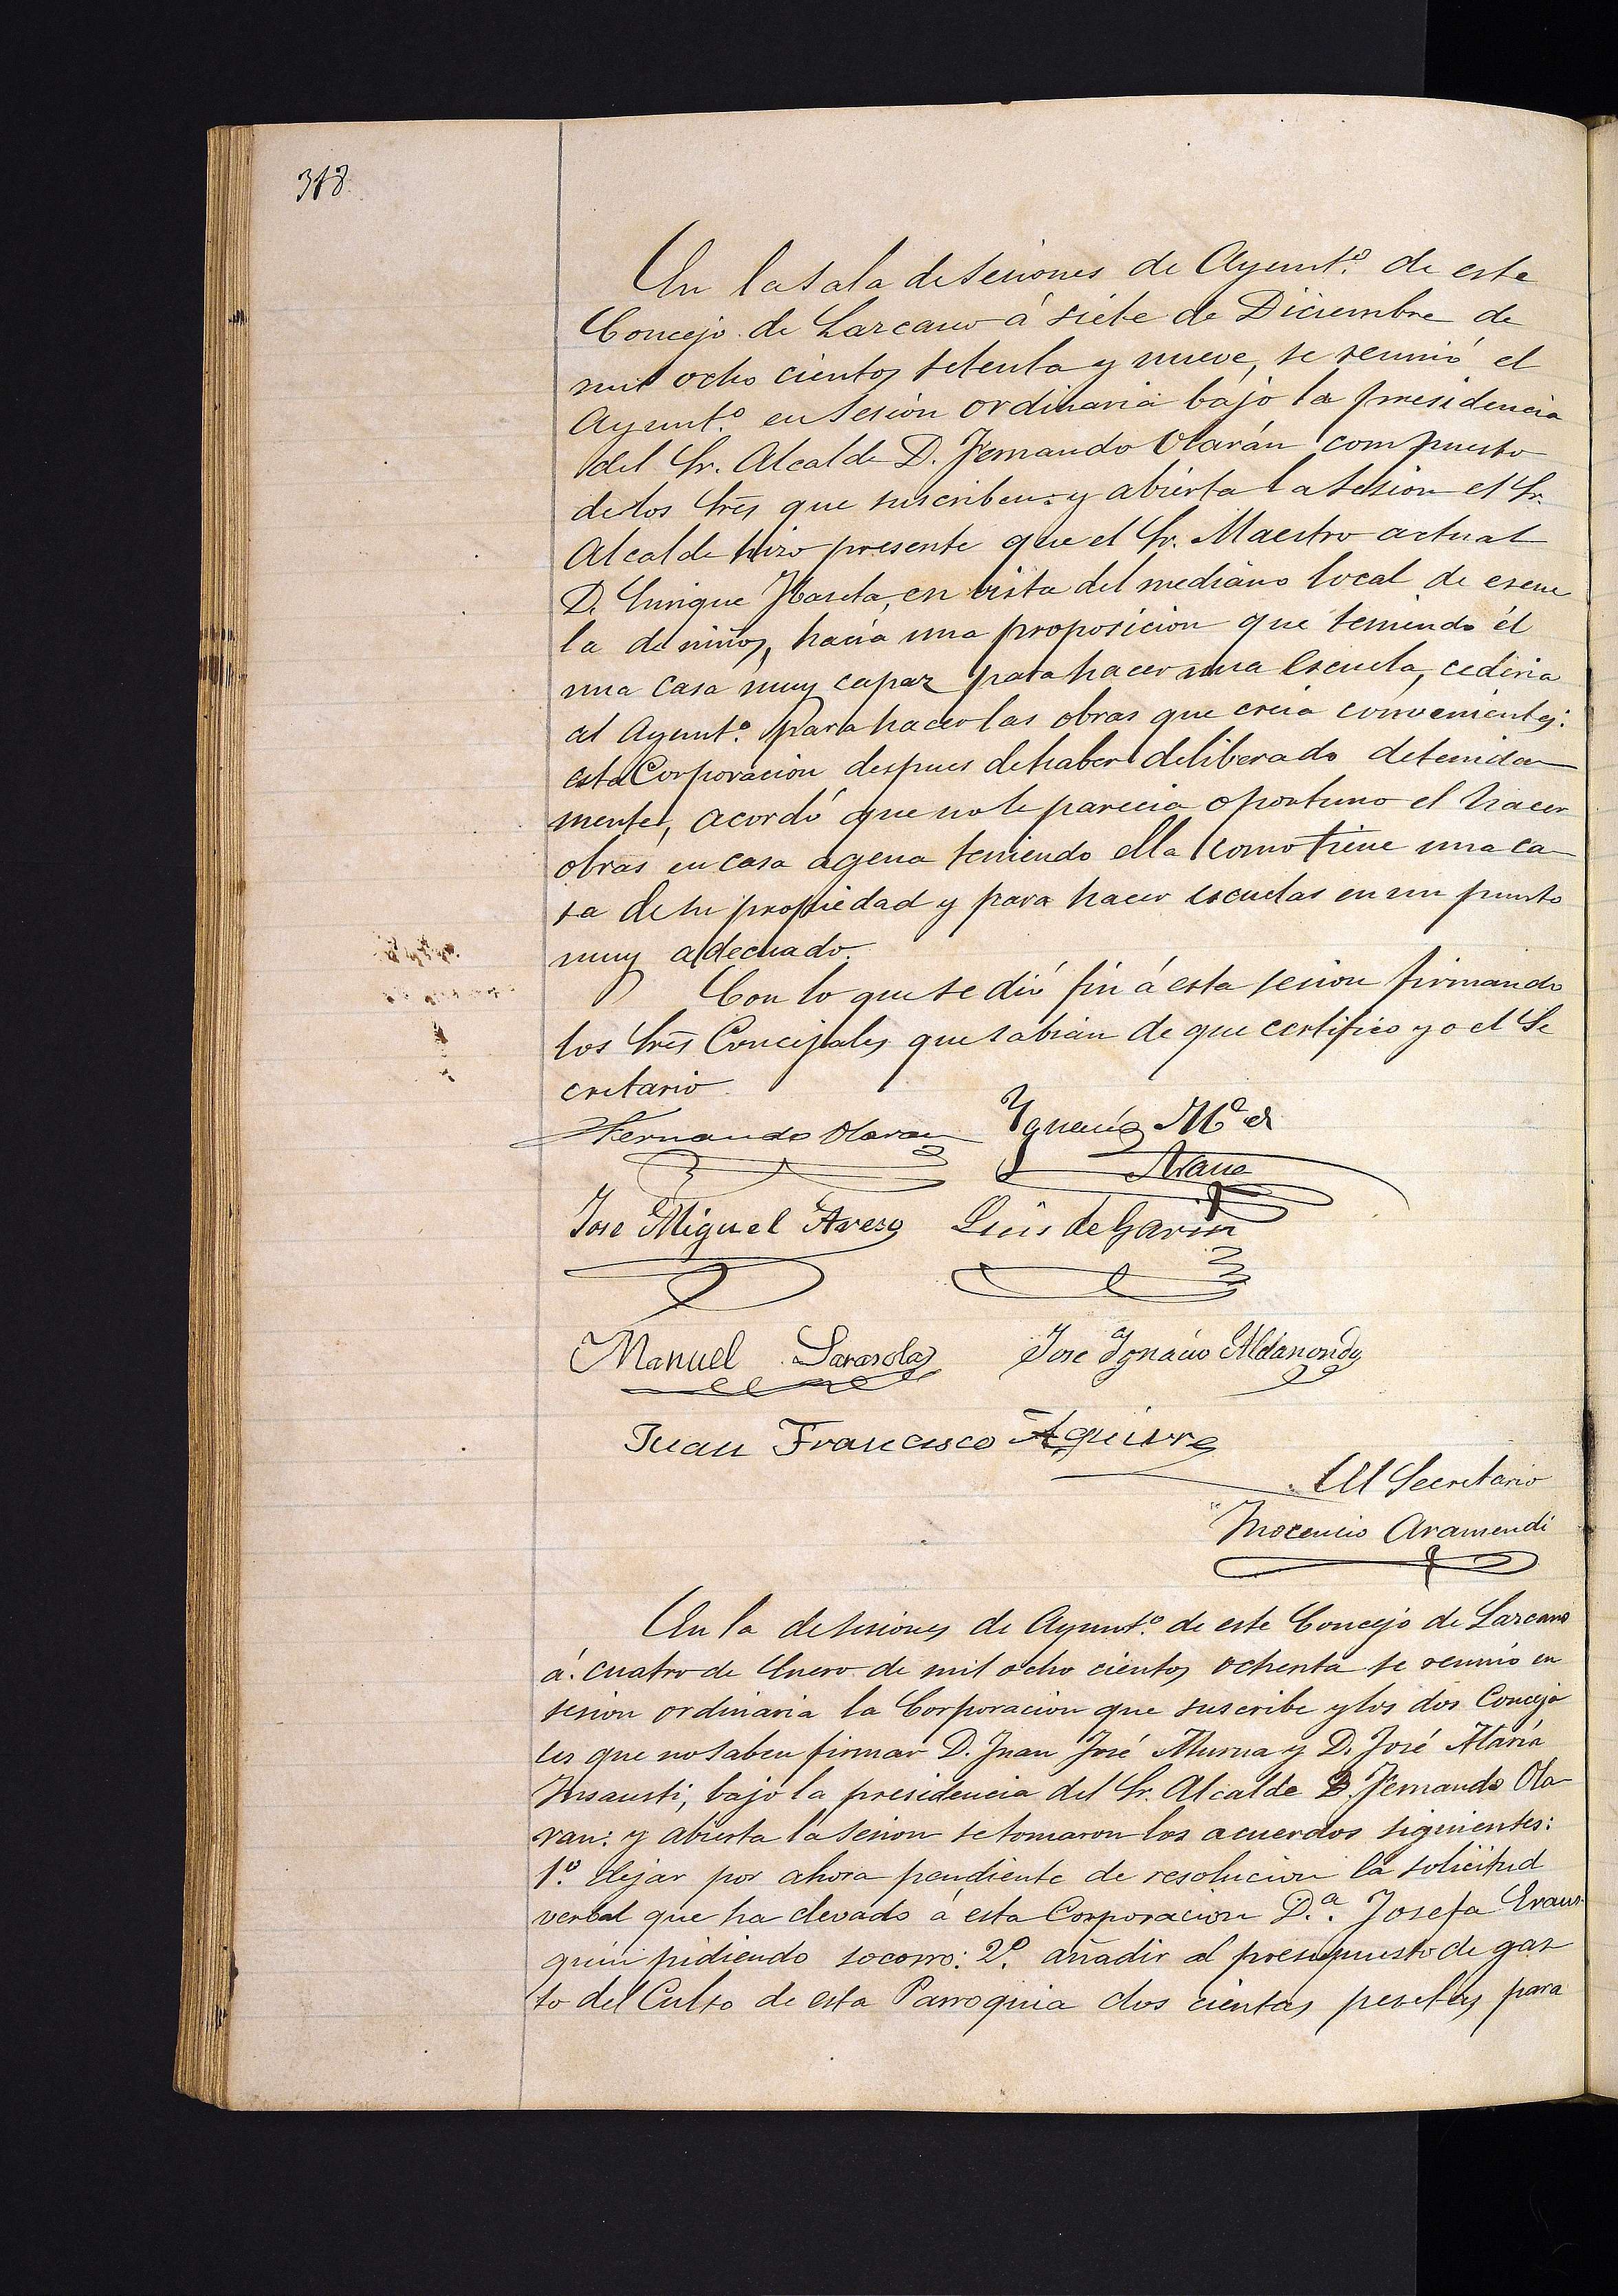 318
En la sala de sesiones de Ayunt.º de este
Concejo de Lazcano á siete de Diciembre de
mil ocho cientos setenta y nueve, se reunió el
Ayunt.º en sesion ordinaria bajo la presidencia
del Sr. Alcalde D. Fernando Olarán compuesto
de los Sres que suscriben: y abierta la sesion el Sr.
Alcalde hizo presente que el Sr. Maestro actual
D. Enrique en vista del mediano local de escue
la de niños, hacia una proposicion que teniendo él
una casa muy capaz para hacer una Escuela, cediria
al Ayunt.º para hacer las obras que creia convenientes:
esta Corporacion despues de haber deliberado detenida
mente, acordó que no le parecia oportuno el hacer
obras en casa agena teniendo ella como tiene una ca
sa de su propiedad y para hacer escuelas en un punto
muy adecuado.
Con lo que se dió fin á esta sesion firmando
los Sres Concejales que sabian de que certifico yo el Se
cretario
Fernando Olaran Ygnacio Mª de
Arana
Jose Miguel Areso Luis de Garin
Manuel Sarasola Jose Ygnacio Aldanondo
Juan Francisco Aguirre
El Secretario
Inocencio Aramendi
En la de sesiones de Ayunt.º de este Concejo de Lazcano
á cuatro de Enero de mil ocho cientos ochenta se reunió en
sesion ordinaria la Corporacion que suscribe y los dos Conceja
les que no saben firmar D. Juan José Murua y D. José María
Insausti, bajo la presidencia del Sr. Alcalde D. Fernando Ola
ran: y abierta la sesion se tomaron los acuerdos siguientes:
1.º dejar por ahora pendiente de resolucion la solicitud
verbal que ha elevado á esta Corporacion D.ª Josefa Eraus
quin pidiendo socorro: 2.º añadir al presupuesto de gas
to del Culto de esta Parroquia dos cientas pesetas para